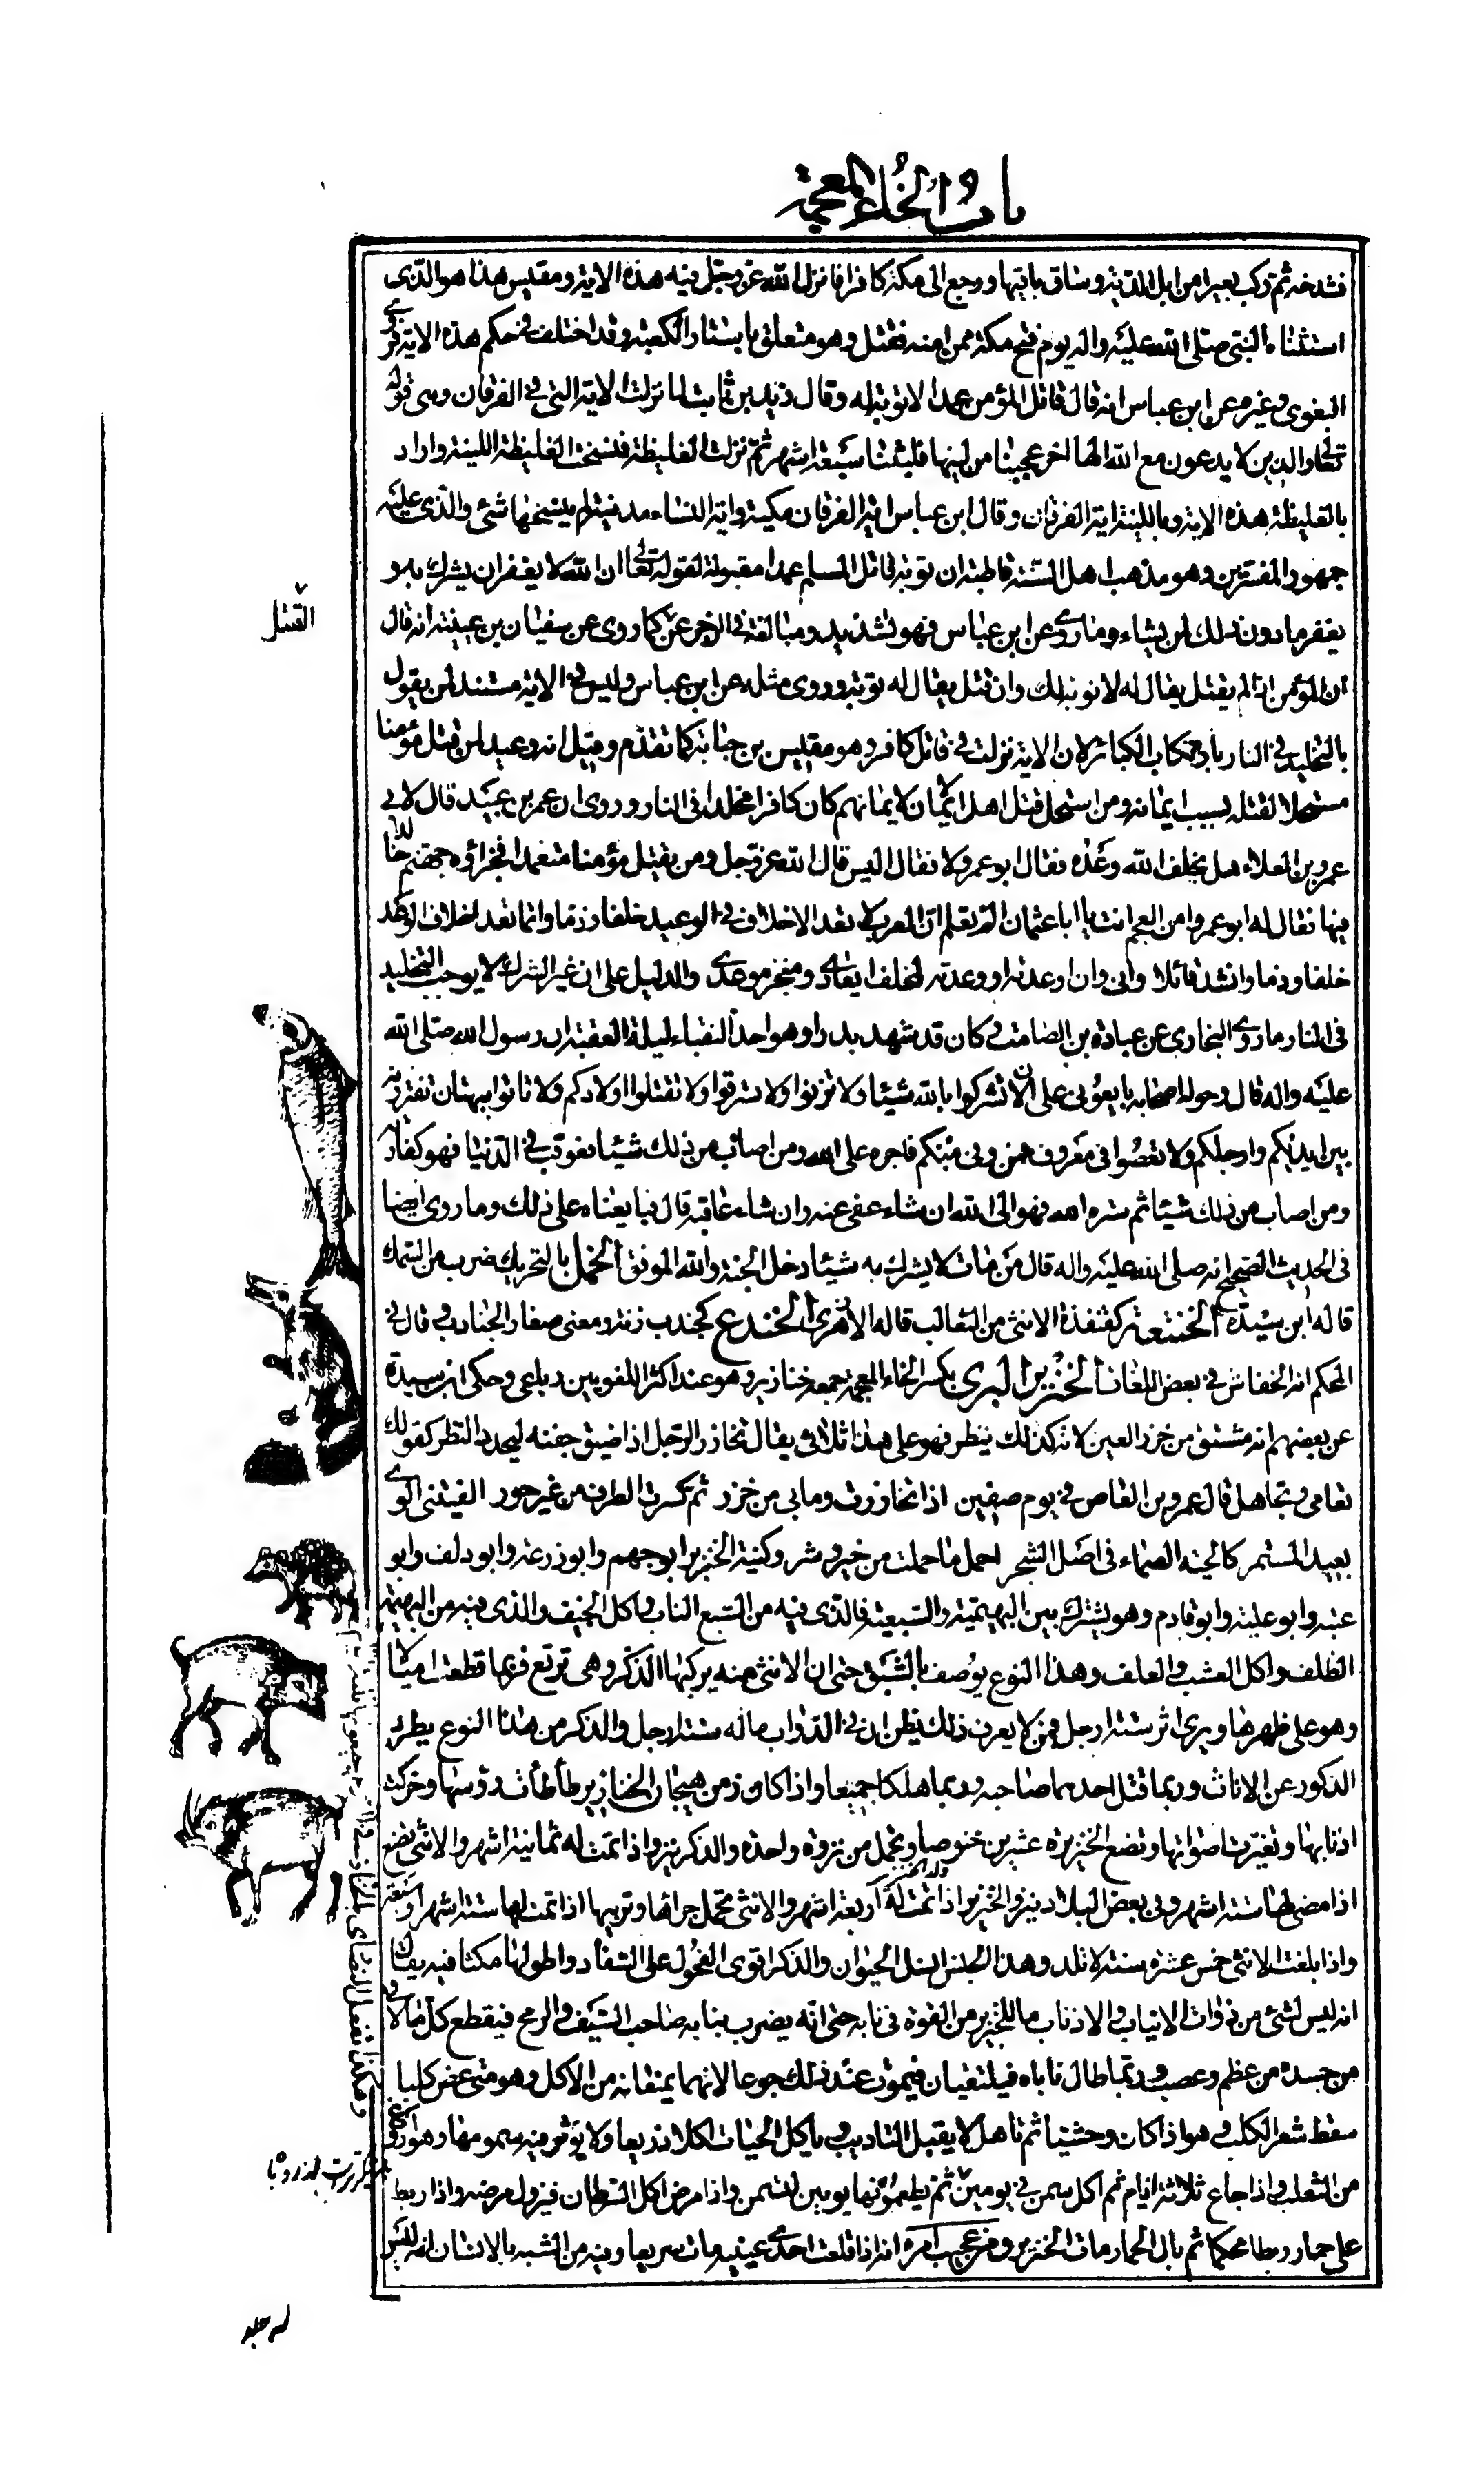 باب الخاء المعجمة
فشدخه ثم ركب بعيرا من ابل الدية وساق باقيها ورجع الى مكة كافرا فانزل الله عز وجل فيه هذه الاية ومقيس هذا هو الذى
استثناه النبى صلى الله عليه واله يوم فتح مكة ممن امنه فقتل وهو متعلق باستار الكعبة وقد اختلف فى حكم هذه الاية فروى
البغوى وغيره عن ابن عباس انه قال قاتل المؤمن عمدا لا توبة له وقال زيد بن ثابت لما نزلت الاية التى فى الفرقان وهى قوله
تعالى والذين لا يدعون مع الله الها اخر عجبنا من لينها فلبثنا سبعة اشهر ثم نزلت الغليظة فنسخت الغليظة اللينة واراد
بالغليظة هذه الاية وباللينة اية الفرقان وقال ابن عباس اية الفرقان مكية واية النساء مدنية لم ينسخها شئ والذى عليه
جمهور المفسرين وهو مذهب اهل السنة قاطبة ان توبة قاتل المسلم عمدا مقبولة لقوله تعالى ان الله لا يغفر ان يشرك به و
يغفر ما دون ذلك لمن يشاء وما روى عن ابن عباس فهو تشديد ومبالغة فى الزجر عن كما روى عن سفيان بن عيينة انه قال
القتل
ان المؤمن اذا لم يقتل يقال له لا توبة لك وان قتل يقال له توبة وروى مثله عن ابن عباس وليس فى الاية مستند لمن يقول
بالتخليد فى النار بارتكاب الكبائر لان الاية نزلت فى قاتل كافر وهو مقيس بن حبابة كما تقدم وقيل انه وعيد لمن قتل مؤمنا
مستحلا لقتله بسبب ايمانه ومن استحل قتل اهل الايمان لايمانهم كان كافرا مخلدا فى النار وروى ان عمر بن عبيد قال لابى
عمرو بن العلاء هل يخلف الله وعده فقال ابو عمرو لا فقال اليس قال الله عز وجل ومن يقتل مؤمنا متعمدا فجزاؤه جهنم خالدا
فيها فقال له ابو عمرو امن العجم انت يا ابا عثمان الم تعلم ان العرب لا تعد الاخلاف فى الوعيد خلفا وذما وانما تعد اخلاف الوعد
خلفا وذما وانشد قائلا وانى وان اوعدته او وعدته لمخلف ايعادى ومنجز موعدى والدليل على ان غير الشرك لا يوجب التخليد
فى النار ما روى البخارى عن عبادة بن الصامت و كان قد شهد بدرا وهو احد النقباء ليلة العقبة ان رسول الله صلى الله
عليه واله قال وحوله اصحابه بايعونى على ان لا تشركوا بالله شيئا ولا تزنوا ولا تسرقوا ولا تقتلوا اولادكم ولا تاتوا ببهتان تفترونه
بين ايديكم وارجلكم ولا تعصوا فى معروف فمن وفى منكم فاجره على الله ومن اصاب من ذلك شيئا فعوقب فى الدنيا فهو كفارة
ومن اصاب من ذلك شيئا ثم ستره الله فهو الى الله ان شاء عفى عنه وان شاء عاقبه قال فبايعناه على ذلك وما روى ايضا
فى الحديث الصحيح انه صلى الله عليه واله قال من مات لا يشرك به شيئا دخل الجنة والله الموفق الخمل بالتحريك ضرب من السمك
قاله ابن سيدة الخنتعة كقنفذة الانثى من الثعالب قاله الازهرى الخندع كجندب زنة ومعنى صغار الجنادب و قال فى
المحكم انه الخفاش فى بعض اللغات الخنزير البرى بكسر الخاء المعجمة جمعه خنازير وهو عند اكثر اللغويين رباعى وحكى ابن سيدة
عن بعضهم انه مشتق من خزر العين لانه كذلك ينظر فهو على هذا ثلاثى يقال تخازر الرجل اذا ضيق جفنه ليحدد النظر كقولك
تعامى وتجاهل قال عمرو بن العاص فى يوم صفين اذا تخازرت وما بى من خزر ثم كسرت الطرف من غير حور الفيتنى الوى
بعيد المستمر كالحية الصماء فى اصل الشجر احمل ما حملت من خير وشر وكنية الخنزير ابو جهم وابو زرعة وابو دلف وابو
عتبة وابو علية وابو قادم وهو يشترك بين البهيمية والسبعية فالذى فيه من السبع الناب واكل الجيف والذى فيه من البهيمة
الظلف واكل العشب والعلف وهذا النوع يوصف بالشبق حتى ان الانثى منه يركبها الذكر وهى ترتع فربما قطعت اميالا
وهو على ظهرها ويرى اثر ستة ارجل فمن لا يعرف ذلك يظن ان فى الدواب ما له ستة ارجل والذكر من هذا النوع يطرد
الذكور عن الاناث وربما قتل احدهما صاحبه وربما هلكا جميعا واذا كان زمن هيجان الخنازير طأطأت رؤسها وحركت
اذنابها وتغيرت اصواتها وتضع الخنزيرة عشرين خنوصا وتحمل من نزوة واحدة والذكر ينزو اذا تمت له ثمانية اشهر والانثى تضع
اذا مضى لها ستة اشهر وفى بعض البلاد ينزو الخنزير اذا تمت له اربعة اشهر والانثى تحمل جراها وتربيها اذا تمت لها ستة اشهر او سبعة
واذا بلغت الانثى خمس عشرة سنة لا تلد وهذا الجنس انسل الحيوان والذكر اقوى الفحول على السفاد واطولها مكثا فيه يقال
انه ليس لشئ من ذوات الانياب والاذناب ما للخنزير من القوة فى نابه حتى انه يضرب بنابه صاحب السيف والرمح فيقطع كل ما لاقى
من جسده من عظم وعصب وربما طال ناباه فيلتقيان فيموت عند ذلك جوعا لانهما يمنعانه من الاكل وهو متى عض كلبا
سقط شعر الكلب و هو اذا كان وحشيا ثم تاهل لا يقبل التاديب و ياكل الحيات اكلا ذريعا ولا يؤثر فيه سمومها وهو اروغ
من الثعلب واذا جاع ثلاثة ايام ثم اكل سمن فى يومين ثم يطعمونها يومين لتسمن واذا مرض اكل السرطان فيزول مرضه واذا ربط
على حمار ربطا محكما ثم بال الحمار مات الخنزير ومن عجيب امره انه اذا قلعت احدى عينيه مات سريعا وفيه من الشبه بالانسان انه ليس
له جلد